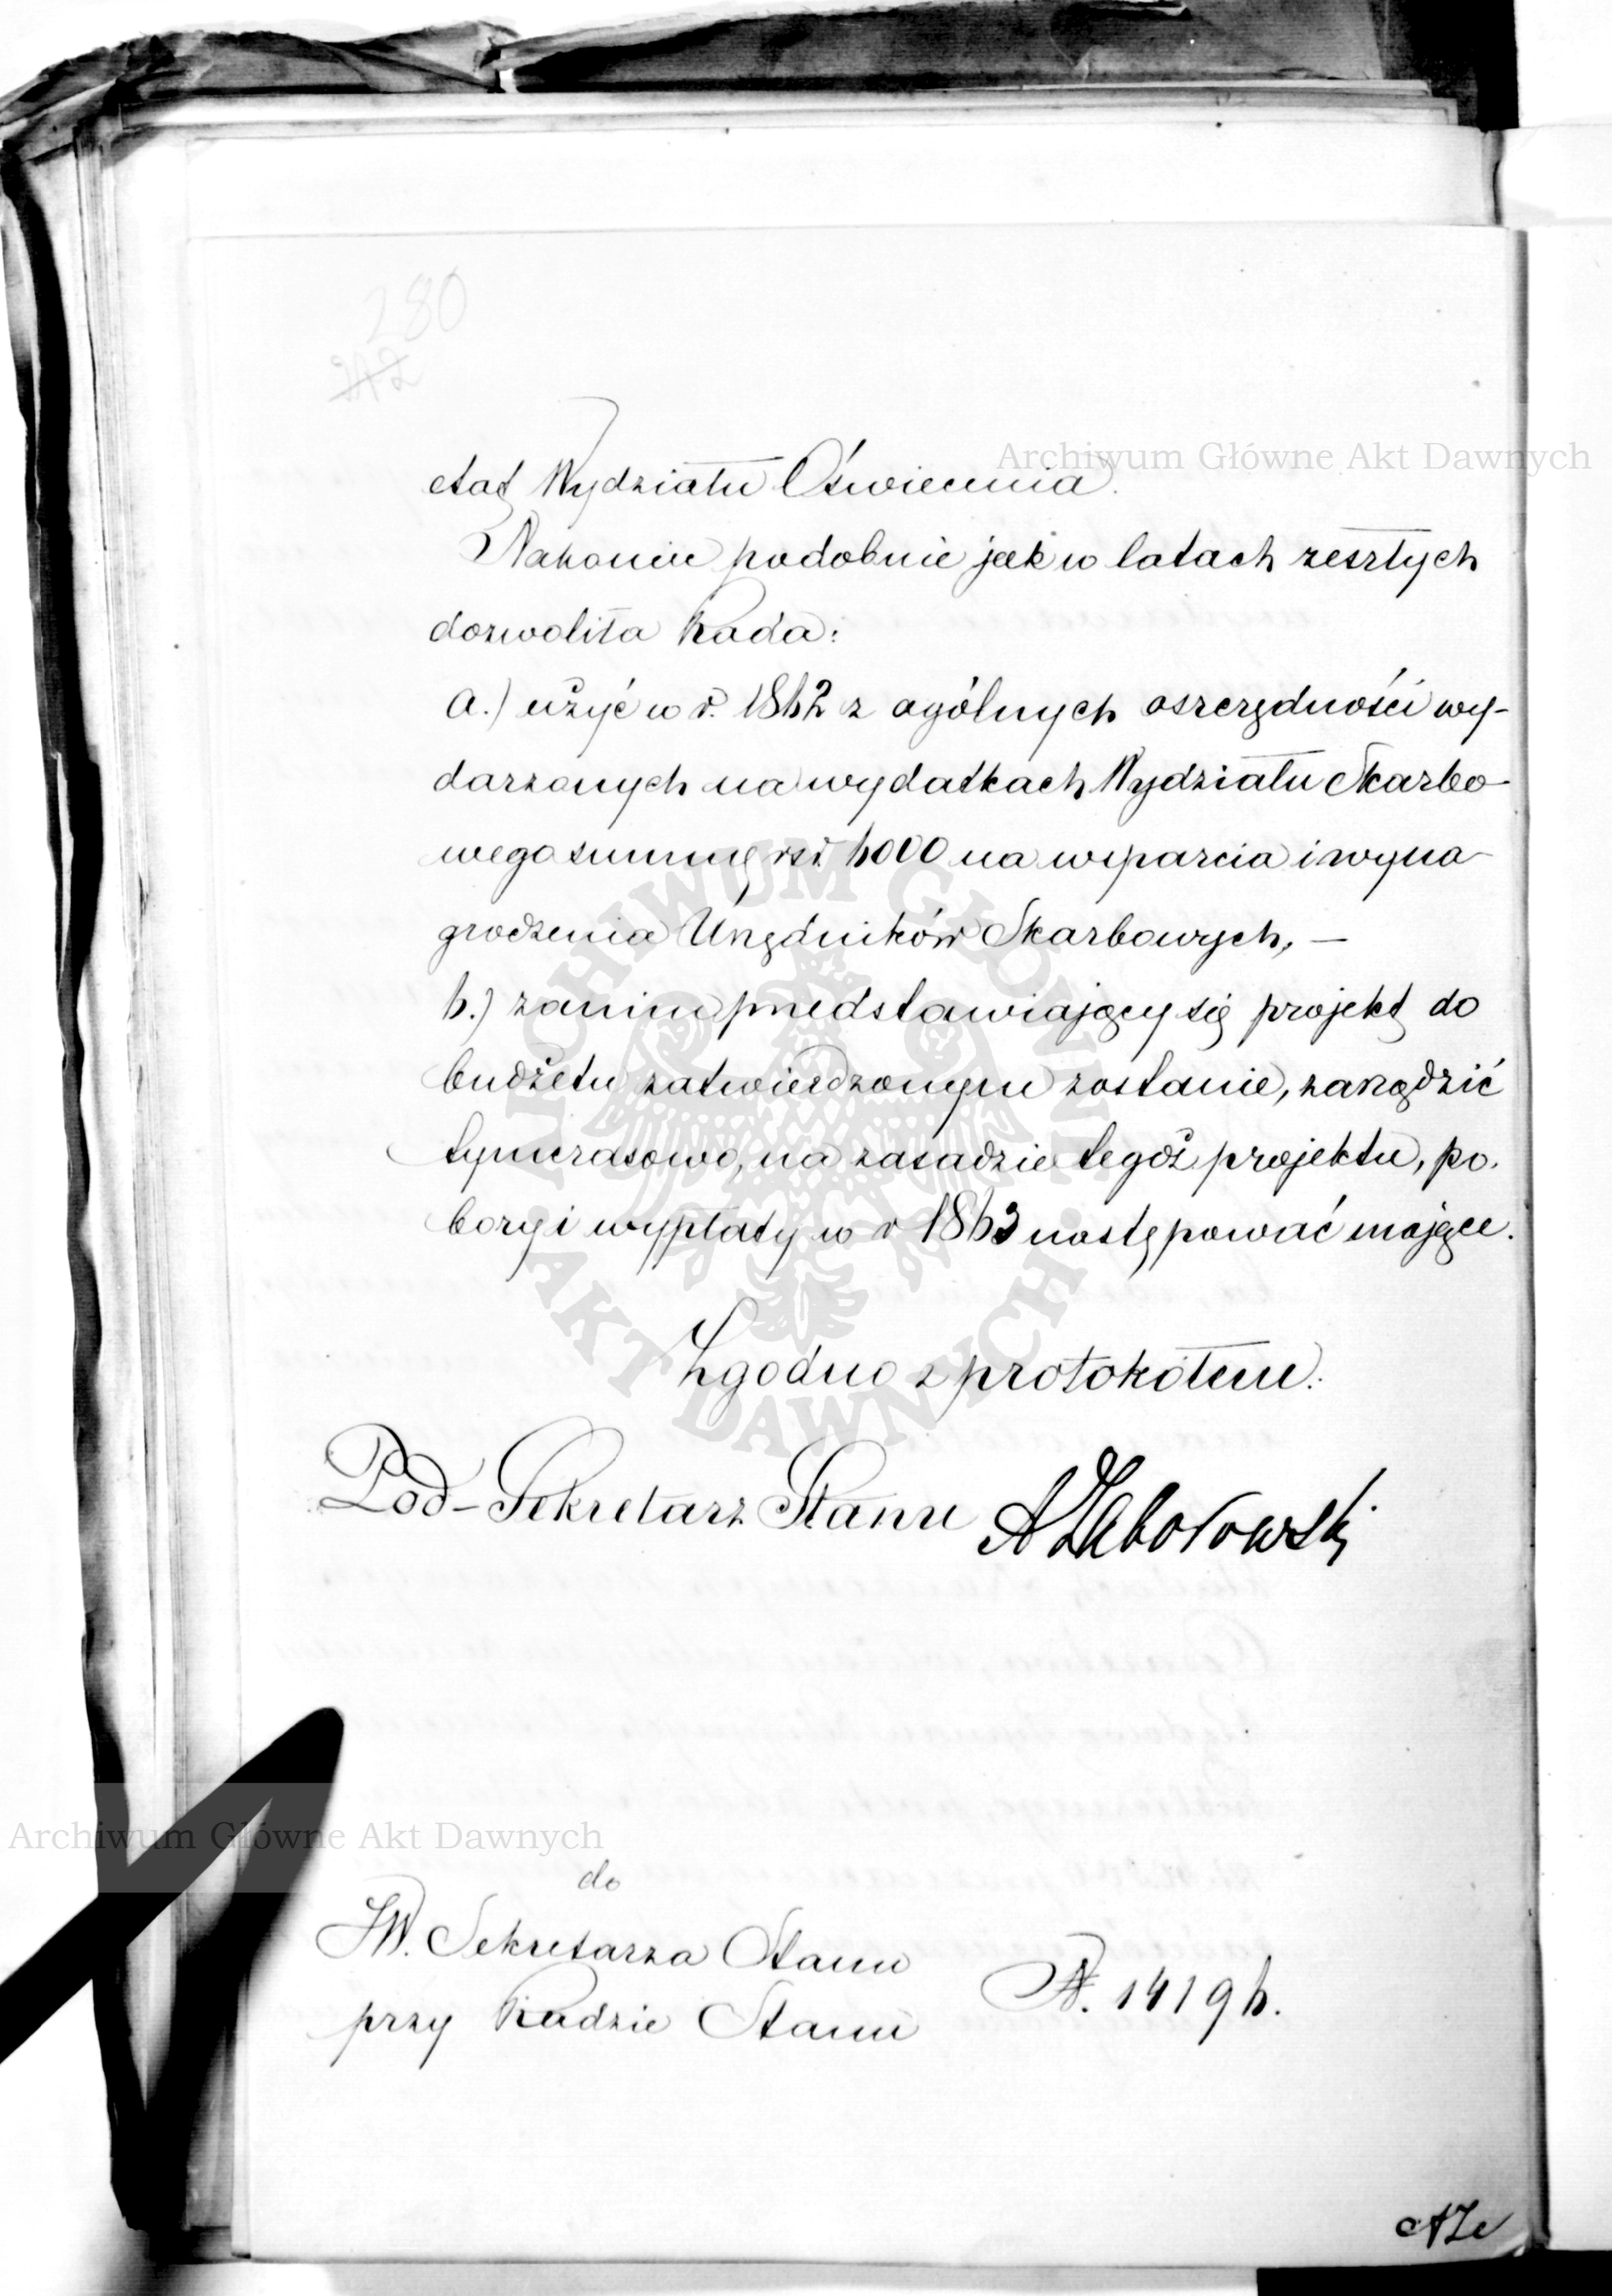 280
etat Wydziału Oświecenia.
Nakoniec podobnie jak w latach zeszłych
dozwoliła Rada:
a.) użyć w r. 1862 z ogólnych oszczędności wy-
darzonych na wydatkach Wydziału Skarbo-
wego summę rsr. 6000 na wsparcia i wyna-
grodzenia Urzędników Skarbowych, —
b.) zanim przedstawiający się projekt do
budżetu zatwierdzonym zostanie, zarządzić
tymczasowo, na zasadzie tegoż projektu, po-
bory i wypłaty w r 1863 następować mające.
Zgodno z protokółem:
Pod-Sekretarz Stanu AZaborowski
do
JW. Sekretarza Stanu
przy Radzie Stanu
N. 14196.
Archiwum Główne Akt Dawnych
Archiwum Główne Akt Dawnych
ARCHIWUM GŁÓWNE
· AKT DAWNYCH ·